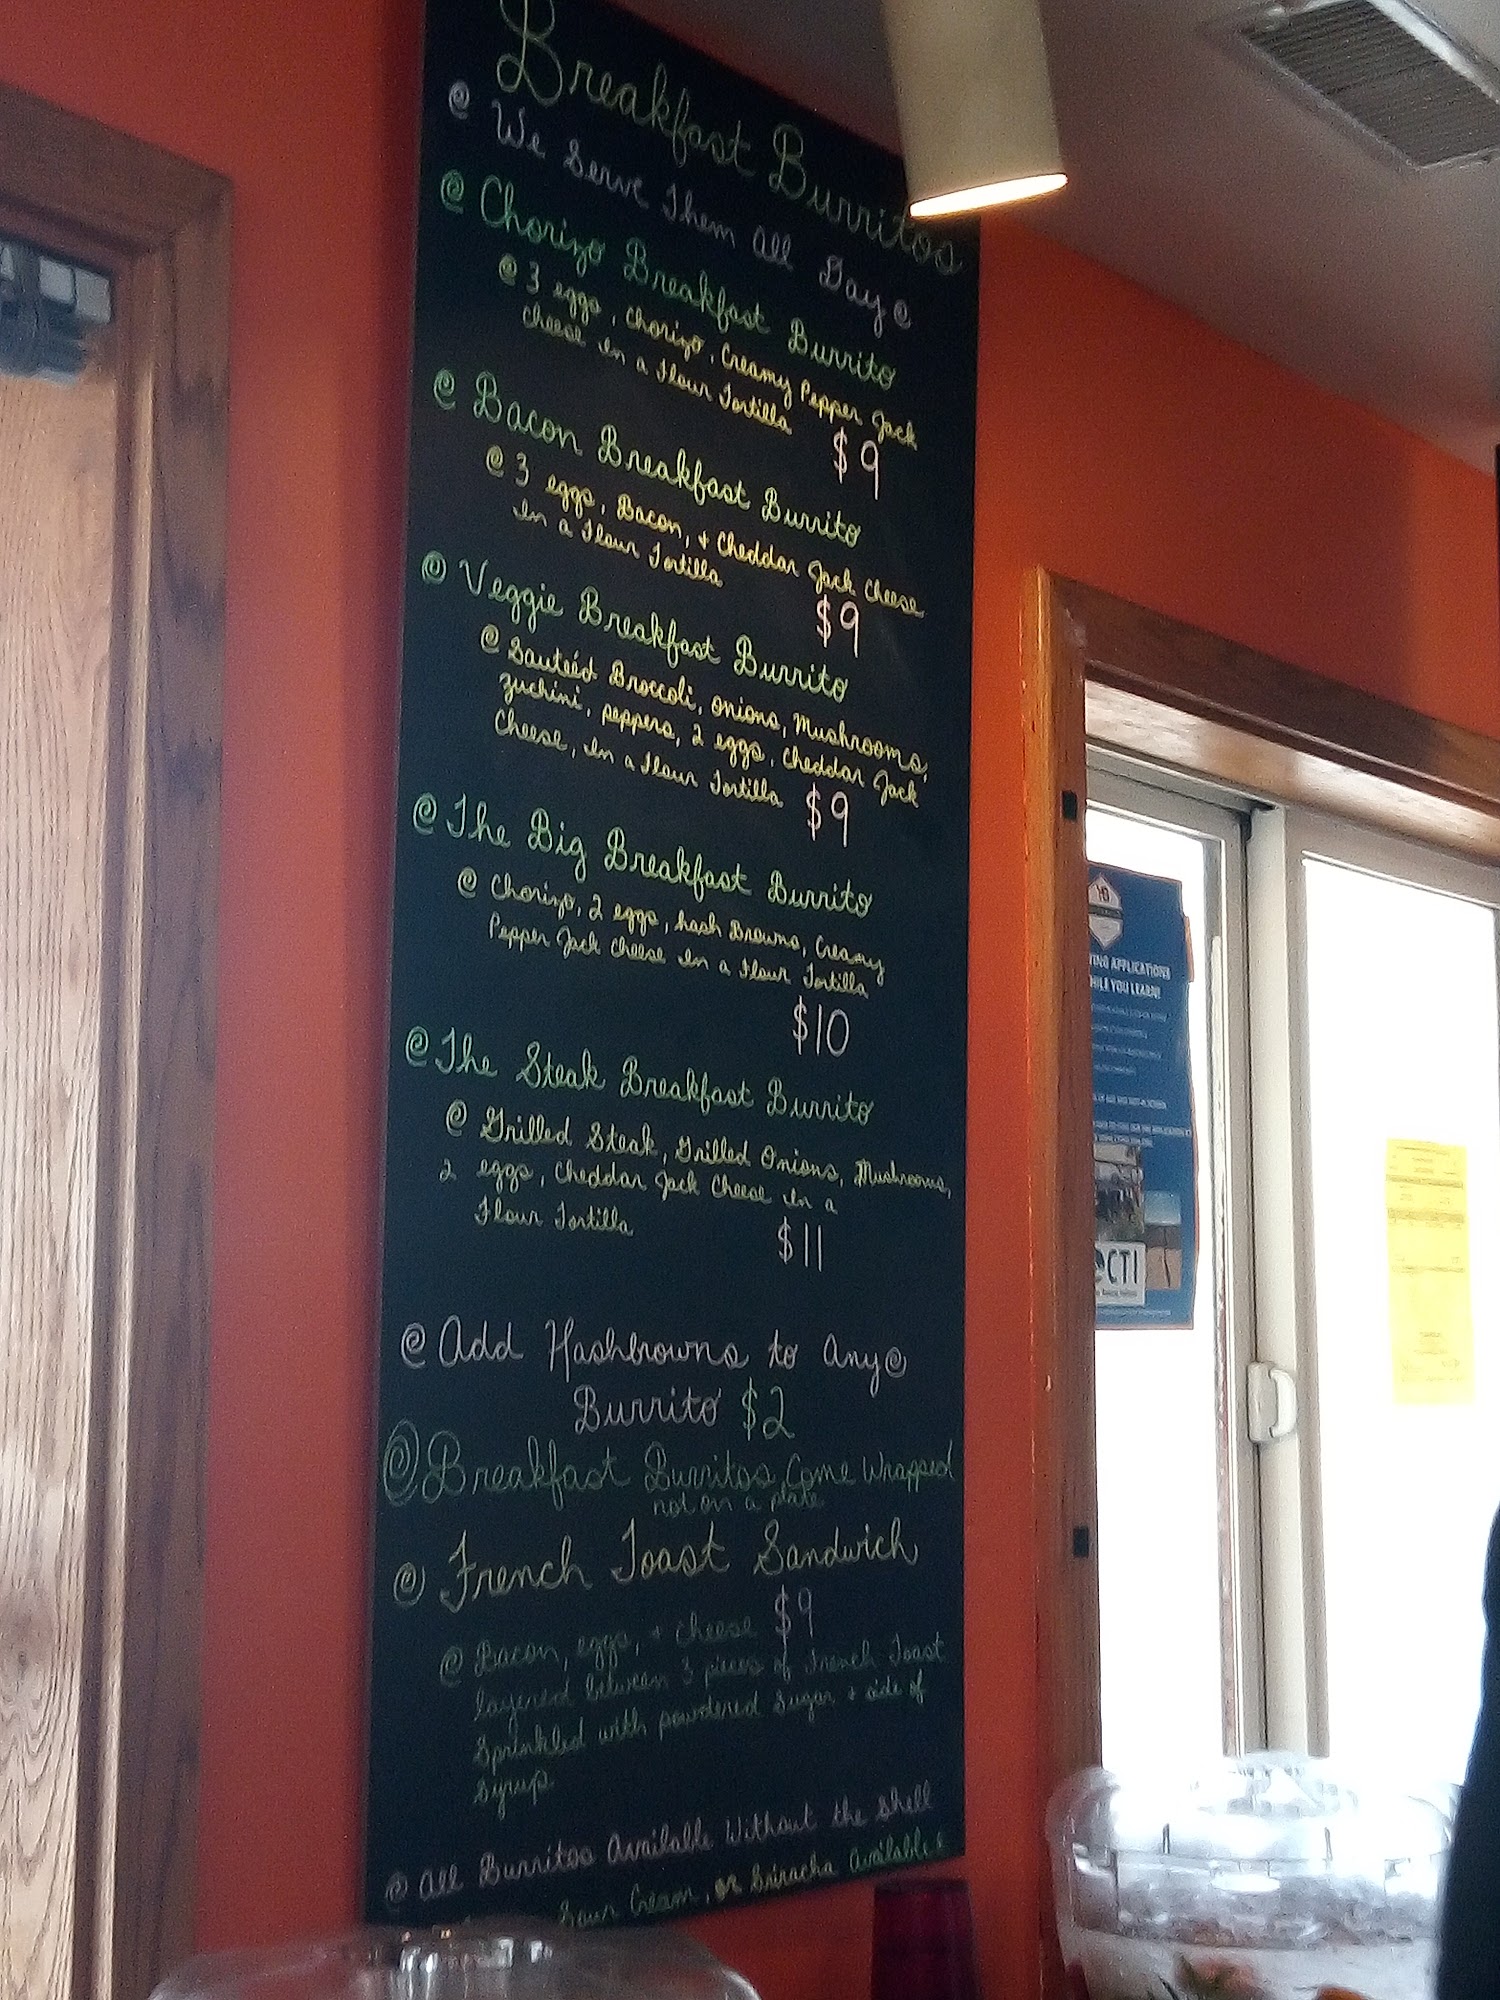 Breakfast Burritos
@ We Serve Them All Day @
@ Chorizo Breakfast Burrito
@ 3 eggs, Chorizo, Creamy Pepper Jack
Cheese In a Flour Tortilla $9
@ Bacon Breakfast Burrito
@ 3 eggs, Bacon, + Cheddar Jack Cheese
In a Flour Tortilla $9
@ Veggie Breakfast Burrito
@ Sauteéd Broccoli, onions, Mushrooms,
zuchini, peppers, 2 eggs, Cheddar Jack
Cheese, In a Flour Tortilla $9
@ The Big Breakfast Burrito
@ Chorizo, 2 eggs, hash Browns, Creamy
Pepper Jack Cheese In a Flour Tortilla
$10
@ The Steak Breakfast Burrito
@ Grilled Steak, Grilled Onions, Mushrooms,
2 eggs, Cheddar Jack Cheese In a
Flour Tortilla $11
@ Add Hashbrowns to Any @
Burrito $2
@ Breakfast Burritos Come Wrapped
not on a plate
@ French Toast Sandwich
$9
@ Bacon, eggs, + cheese
layered between 3 pieces of French Toast
Sprinkled with powdered Sugar + side of
Syrup.
@ All Burritos Available Without the Shell
Sour Cream, or Sriracha Available
YING APPLICATIONS
HILE YOU LEARN!
CTI